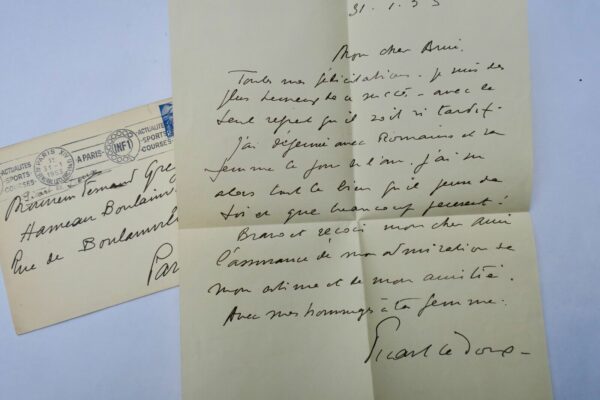 31. 1. 53
Mon cher Ami.
Toutes mes félicitations. je suis des
plus heureux de ce succès - avec le
seul regret qu'il soit si tardif.
J'ai déjeuné avec Romains et sa
femme le jour de l'an. j'ai su
alors tout le bien qu'il pense de
toi et que beaucoup pensent !
Bravo et reçois mon cher Ami
l'assurance de mon admiration de
mon estime et de mon amitié.
Avec mes hommages à ta femme.
Picart le Doux
ACTUALITÉS
SPORTS
COURSES
PARIS XV
1953
A PARIS
INF1
ACTUALITÉS
SPORTS
COURSES
Monsieur Fernand Greg
Hameau Boulainv
Rue de Boulainvil
Par